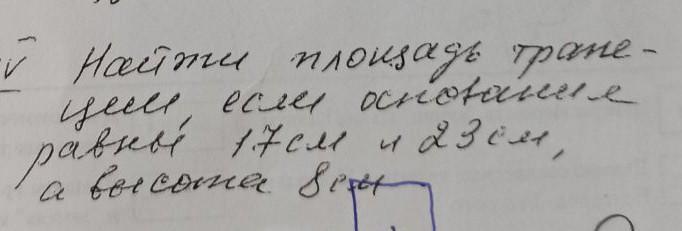 V Найти площадь трапе-
ции, если основания
равны 17 см и 23 см,
а высота 8 см